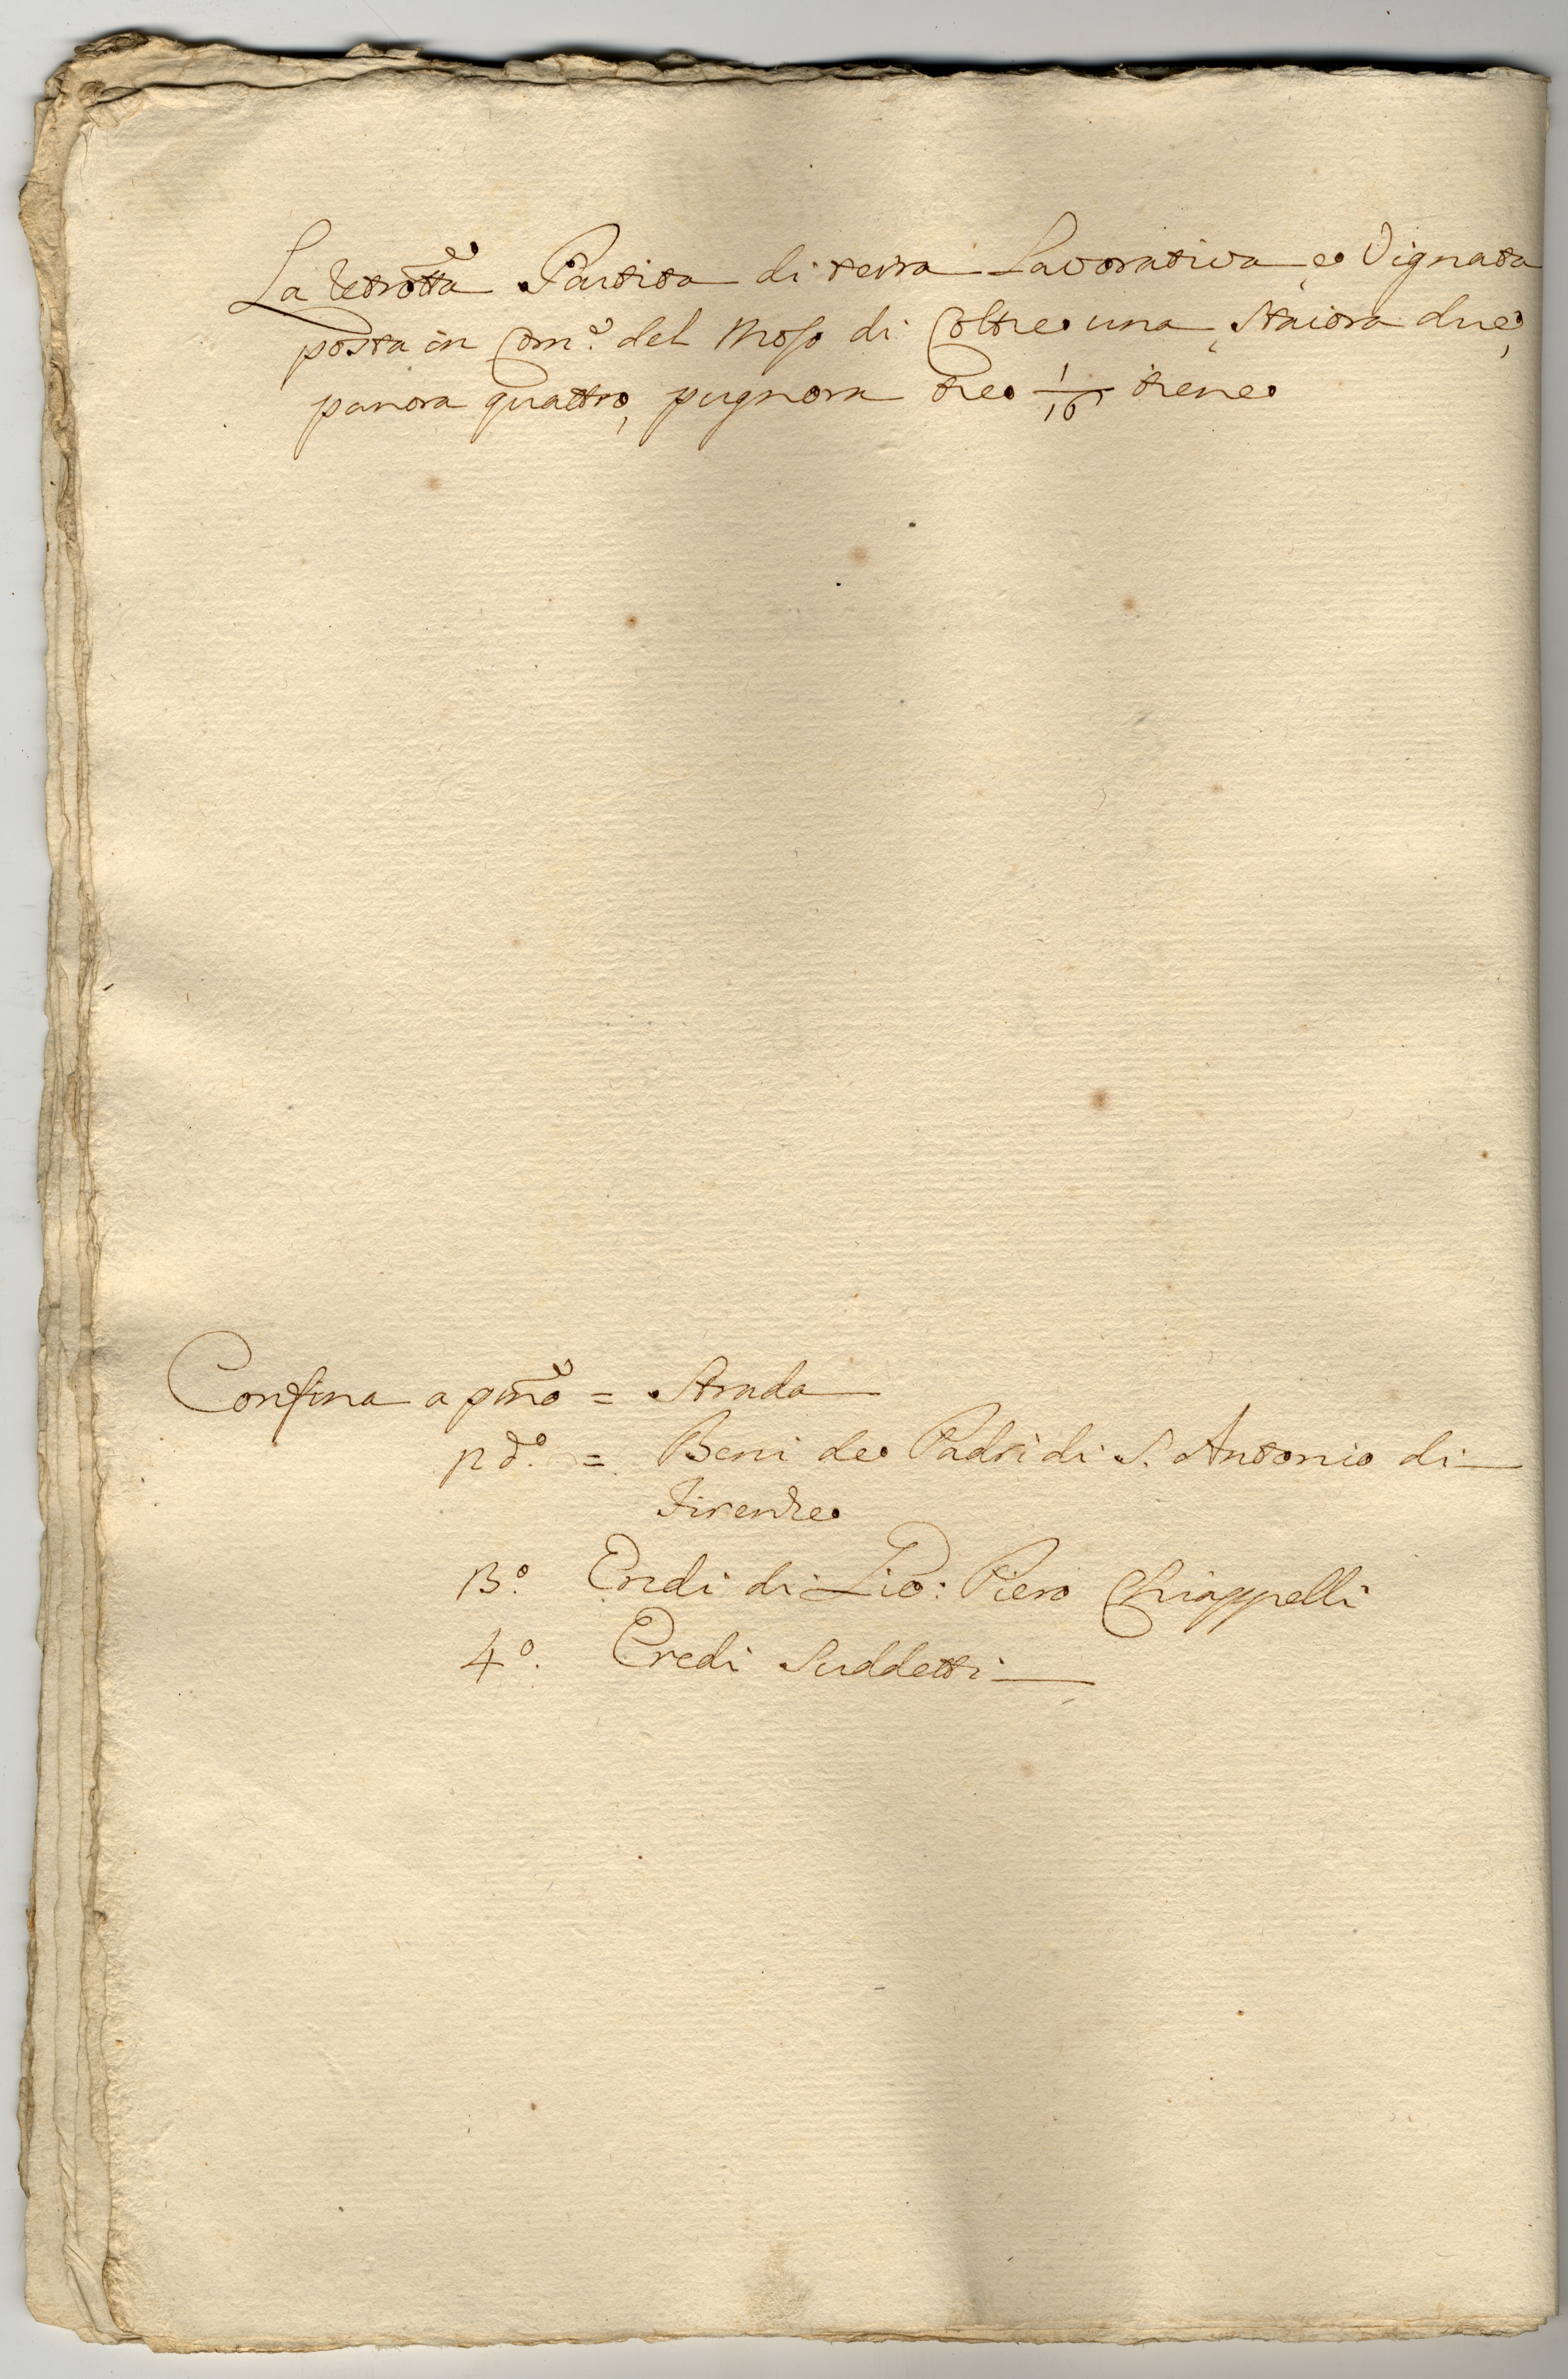 La retrotta Partita di terra Lavorativa, e Vignata
posta in Com.e del Moso di Coltre una, Staiora due,
panora quattro, pugnora tre 1/16 tiene
Confina a pmo = Strada
pd.o = Beni de Padri di S. Antonio di
Firenze
13.o Eredi di Lio: Piero Chiappelli
4.o Eredi Suddetti